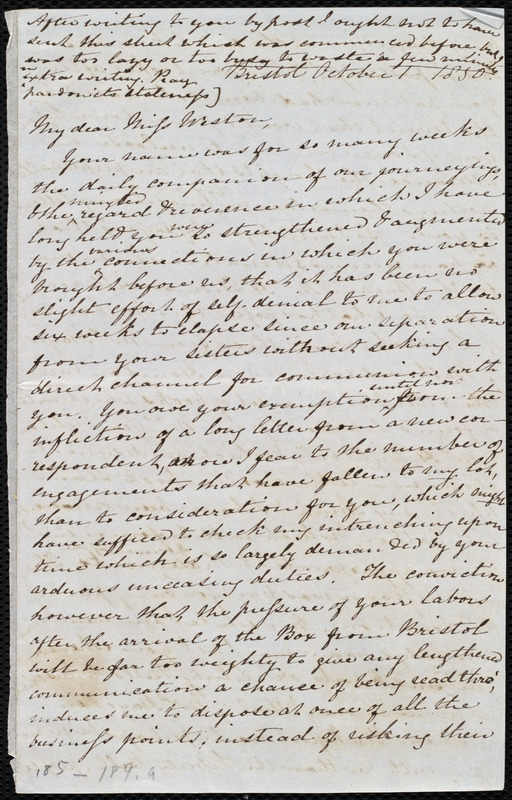 After writing to you by post I ought not to have
sent this sheet which was commenced before but I
was too lazy or too busy to waste a few minutes
in extra writing. Pray
pardon its staleness]
Bristol October 1 1850
My dear Miss Weston,
Your name was for so many weeks
the daily companion of our journeyings,
& the mingled regard & reverence in which I have
long held you were so strengthened & augmented
by the various connections in which you were
brought before us, that it has been no
slight effort of self-denial to me to allow
six weeks to elapse since our separation
from your sisters without seeking a
direct channel for communion with
you. You owe your exemption until now from the
infliction of a long letter from a new cor
respondent, more I fear to the number of
engagements that have fallen to my lot,
than to consideration for you, which might
have sufficed to check my intrenching upon
time which is so largely demanded by your
arduous unceasing duties. The conviction
however that the pressure of your labors
after the arrival of the Box from Bristol
will be far too weighty to give any lengthened
communication a chance of being read thro',
induces me to dispose at once of all the
business points, instead of risking their
185 - 189. a